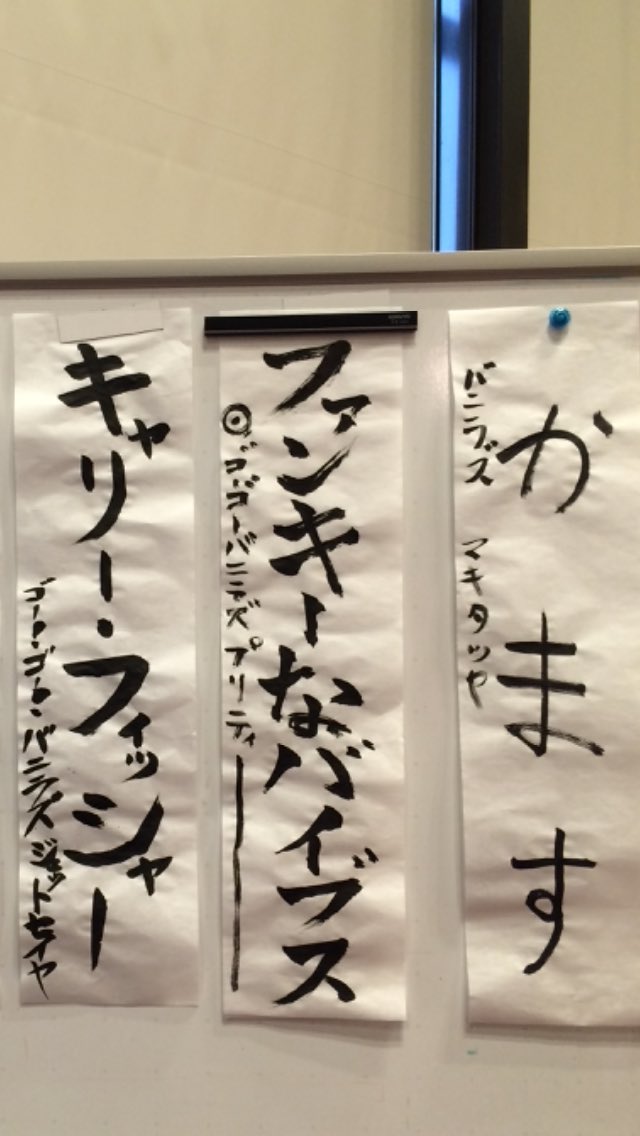 かます
バニラズ マキタツヤ
ファンキーなバイブス
◎ゴーゴーバニラズ プリティ
キャリー・フィッシャー
ゴート・ゴート・バニラズ ジェットセイヤ